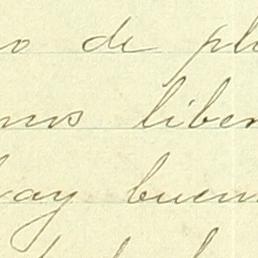 o de pl
mos liber
hay buen